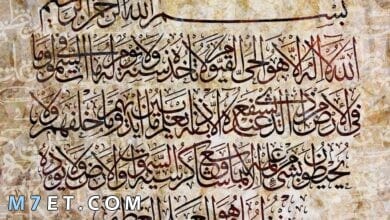 بسم الله الرحمن الرحيم
الله لا إله إلا هو الحي القيوم لا تأخذه سنة ولا نوم له ما في السموات وما
في الأرض من ذا الذي يشفع عنده إلا بإذنه يعلم ما بين أيديهم وما خلفهم ولا
يحيطون بشيء من علمه إلا بما شاء وسع كرسيه السموات والأرض ولا يؤده
وهو العلي العظيم
M7ET.COM